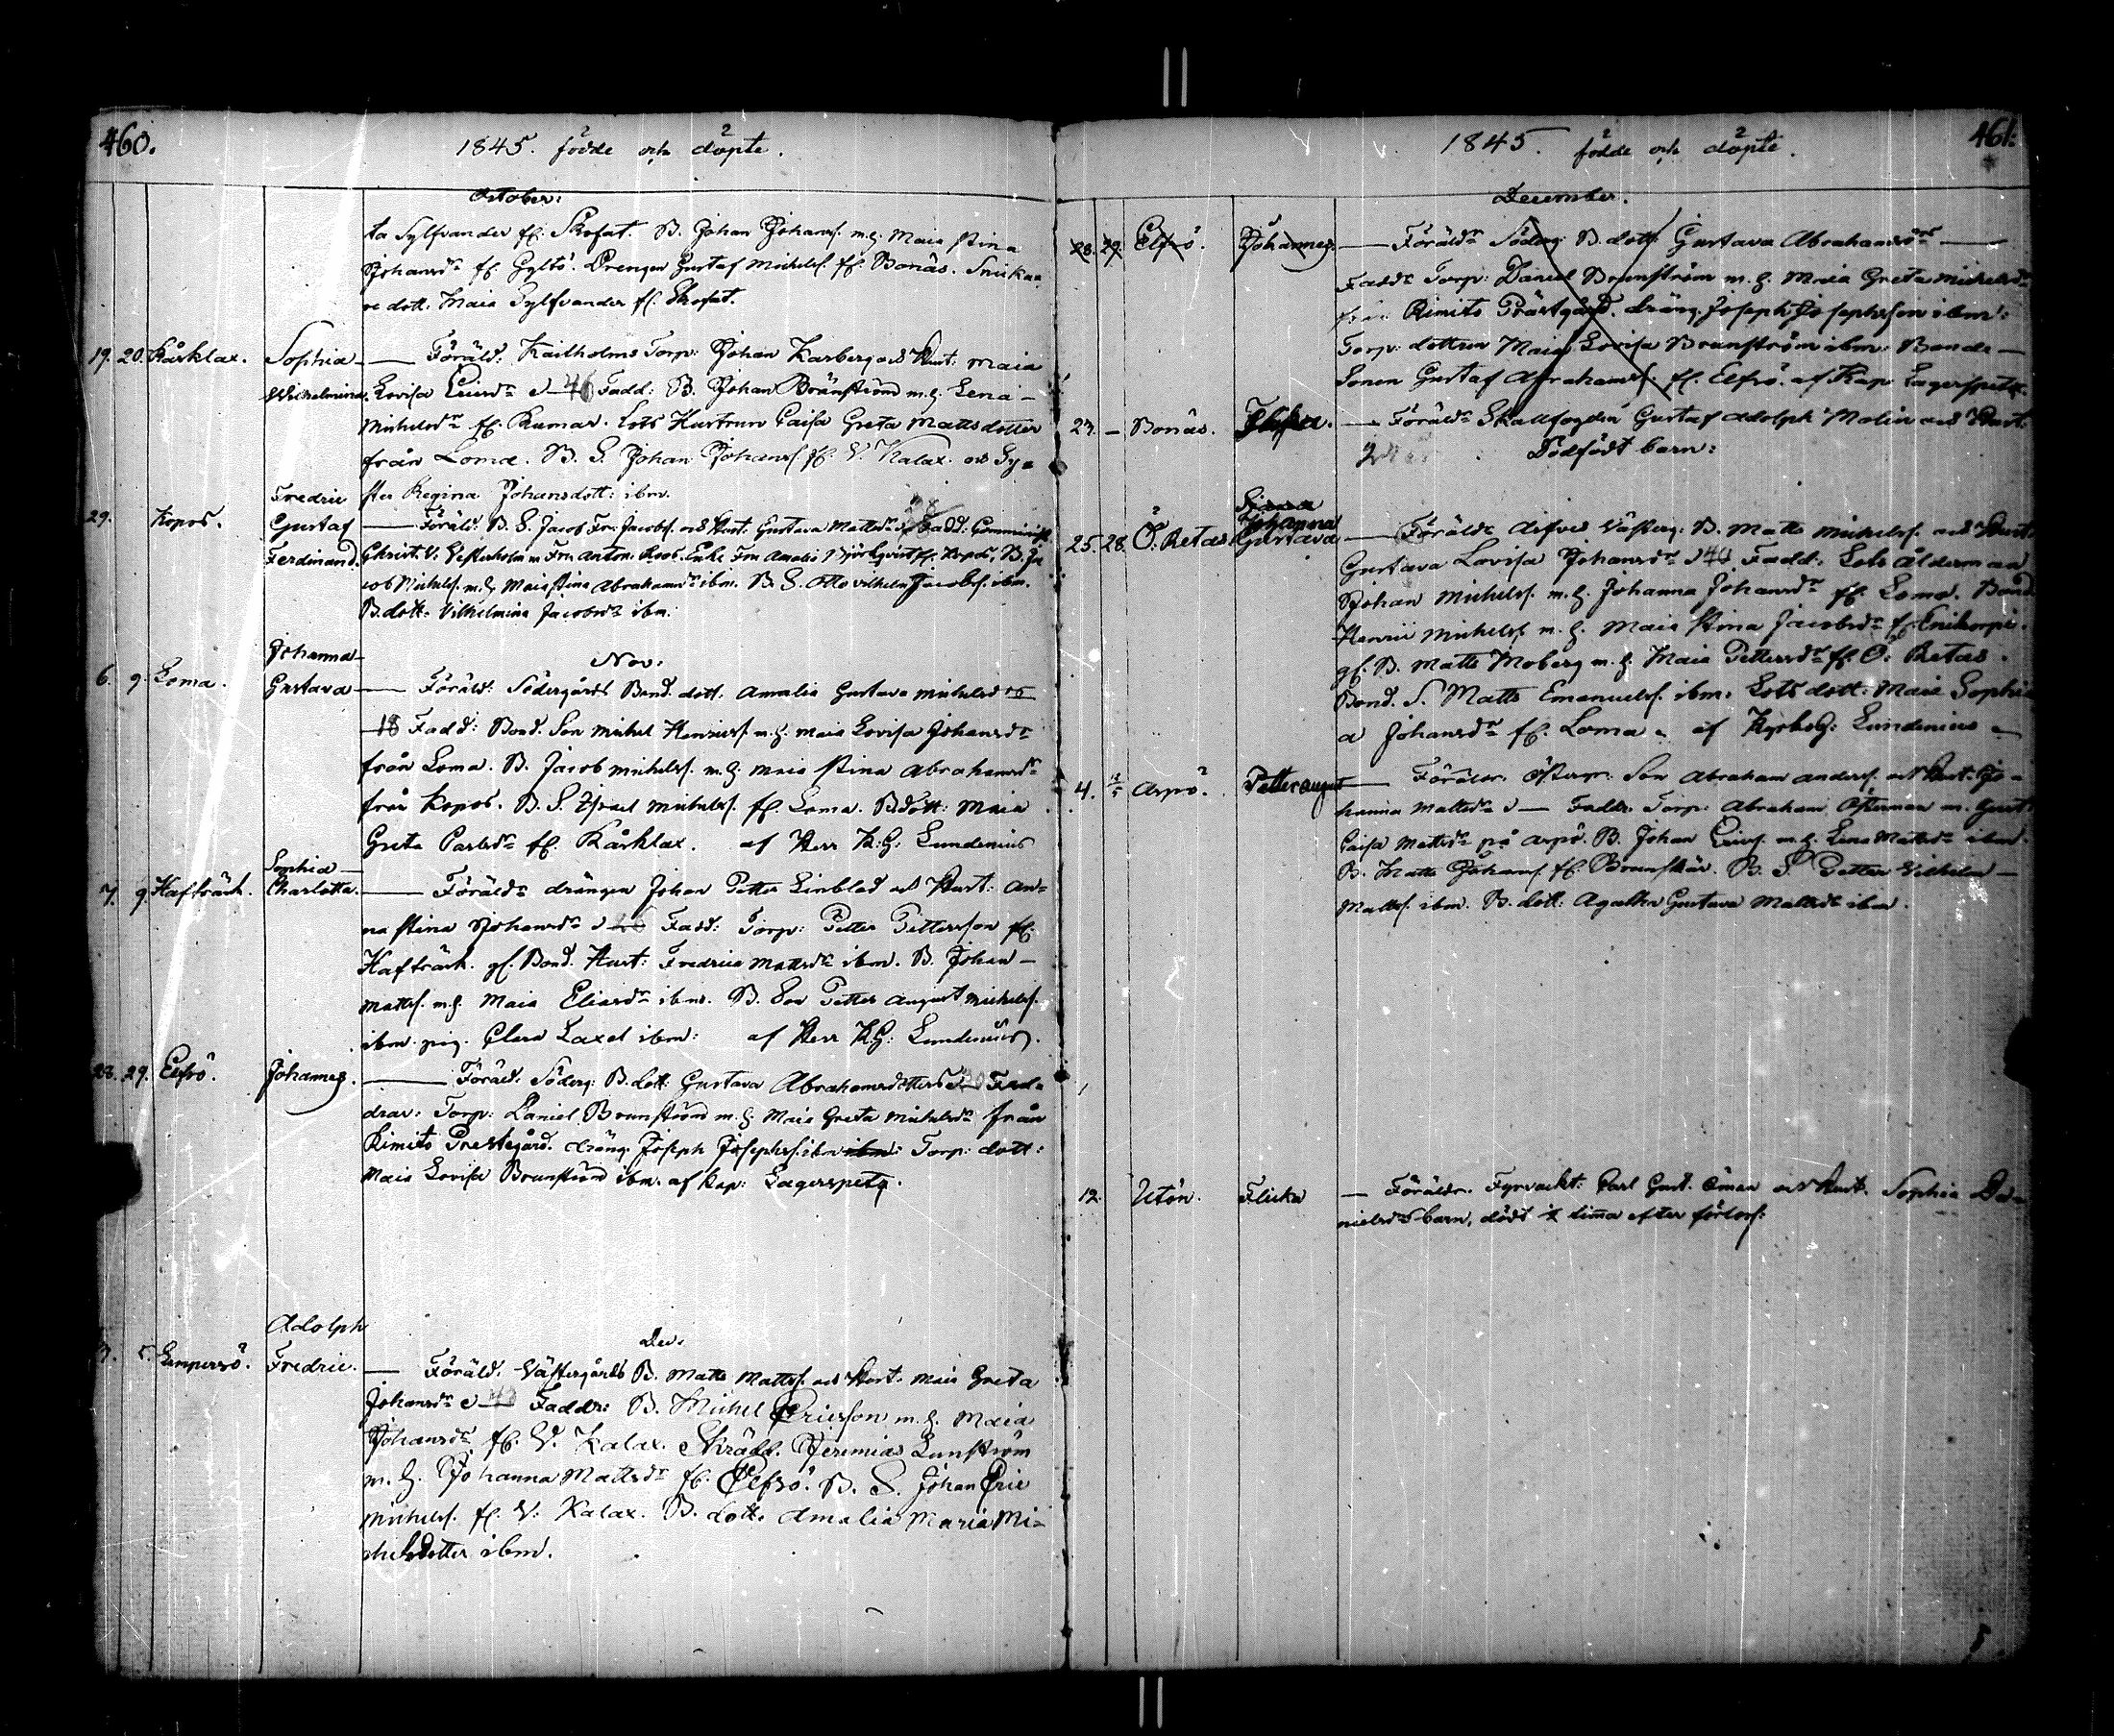 460.
1845. födde och döpte.
October:
ta Sylfvander fr. Skofat. B. Johan Johans. m.h. Maia Stina
Johansdr fr. Gyltö. Drengen Gustaf Michels. fr. Bonäs. Snicka-
re dott. Maia Sylfvander fr. Skofat.
19. 20. Kårklax. Sophia — Föräld. Kailholms Torp: Johan Karberg och Hust: Maia
Wilhelmina. Lovisa Ericsdr 46 Fadd: B. Johan Bränström m.h. Lena
Michelsdr fr. Rumar. Lots Hustrun Caisa Greta Mattsdotter
från Loma. B. S. Johan Johans fr. V. Kalax. och Sy-
ster Regina Johansdott: ibm.
Fredric
29. Kopos. Gustaf — Föräld: B. S. Jacob Fr. Jacobs. och Hust. Gustava Mattsdr 28 Fadd: Comminist.
Ferdinand. Christ. V. Vesterholm m Fru Anton. Roos. Enke Fru Amalia Björkqvist fr. Kopos. B. Ja
cob Michels. m.h. Maia Stina Abrahamsdr ibm. B. S. Otto Vilhelm Jacobs. ibm.
B. dott. Vilhelmina Jacobsdr ibm:
Johanna
Nov:
6. 9. Loma. Gustava — Föräld: Södergårds Bond. dott. Amalia Gustava Michelsd
18 Fadd: Bond. Son Michel Henrics. m.h. Maia Lovisa Johansdr
från Loma. B. Jacob Michels. m.h. Maia Stina Abrahamsdr
från Kopos. B. S. Israel Michels. fr. Loma. B. dott: Maia
Greta Carlsdr fr. Kårklax. af Herr K.G. Lundenius
Sophia
7. 9. Hafträsk. Charlotta. — Föräldr drängen Johan Petter Linblad och Hust: An-
na Stina Johansdr 26 Fadd: Torp: Petter Pettersson fr.
Hafträsk. gl. Bond. Hust: Fredrica Mattsdr ibm. B. Johan
Matts. m.h. Maia Eliasdr ibm. B. Son Petter August Michels.
ibm. pig. Clara Laxel ibm: af Herr K.G: Lundenius.
28. 29. Elfsö. Johannes. — Föräld. Söderg: B. dott: Gustava Abrahamsdotters Fad-
drar: Torp: Daniel Brunström m.h. Maia Greta Michelsdr från
Kimito Prestegård. dräng. Joseph Josephs. ibm ibm: Torp: dott:
Maia Lovisa Brunström ibm. af Kap: Lagerspetz.
Adolph
Dec:
3. 5. Lempersö. Fredric. — Föräld. Västergårds B. Matts Matts. och Hust. Maia Greta
Johansdr Faddr: B. Michel Ericsson m.h. Maia
Johansdr fr. V. Kalax. Skrädd. Jeremias Lunström
m.h. Johanna Mattsdr fr. Elfsö. B. S. Johan Eric
Michels. fr. V. Kalax. B. dott. Amalia Maria Mi-
chelsdotter ibm.
461.
1845. födde och döpte.
December.
28. 29. Elfsö. Johannes. — Föräldr Söderg: B. dott: Gustava Abrahamsdr
Faddr Torp: Daniel Brunström m.h. Maia Greta Michelsdr
från Kimito Prästgård. dräng. Joseph Josephsson ibm:
Torp: dottren Maia Lovisa Brunström ibm: Bonde
Sonen Gustaf Abrahams. fr. Elfsö. af Kap Lagerspetz.
27. — Bonäs. Flicka. — Föräldr Skallfogden Gustaf Adolph Malin och Hust.
Dödfödt barn:
Johanna
25. 28. Ö. Retas Gustava — Föräldr Väfterg: B. Matts Michels. och Hust:
Gustava Lovisa Johansdr 40. Fadd: Lots ålderman
Johan Michels. m.h. Johanna Johansdr fr. Loma. Bond
Henric Michels. m.h. Maia Stina Jacobsdr fr. Enikorpi.
gl. B. Matts Moberg m.h. Maia Pettersdr fr. Ö. Retas.
Bond. S. Matts Emanuels. ibm. Lots dott: Maia Sophi
a Johansdr fr. Loma. af Kyrkoh: Lundenius
4. Aspö. Petter August — Föräldr. Österg: Son Abraham Anders. och Hust. Jo-
hanna Mattsdr — Faddr. Torp: Abraham Österman m. Hust:
Caisa Mattsdr på Aspö. B. Johan Erics. m.h. Lena Mattsdr ibm.
B. Matts Johans. fr. Brunskär. B. S. Petter Vilhelm
Matts. ibm. B. dott: Agatha Gustava Mattsdr ibm.
12. Utön. Flicka — Föräldr. Fyrvackt: Carl Gust. Öman och Hust. Sophia Da-
nielsds barn, dödt timma efter förloss: